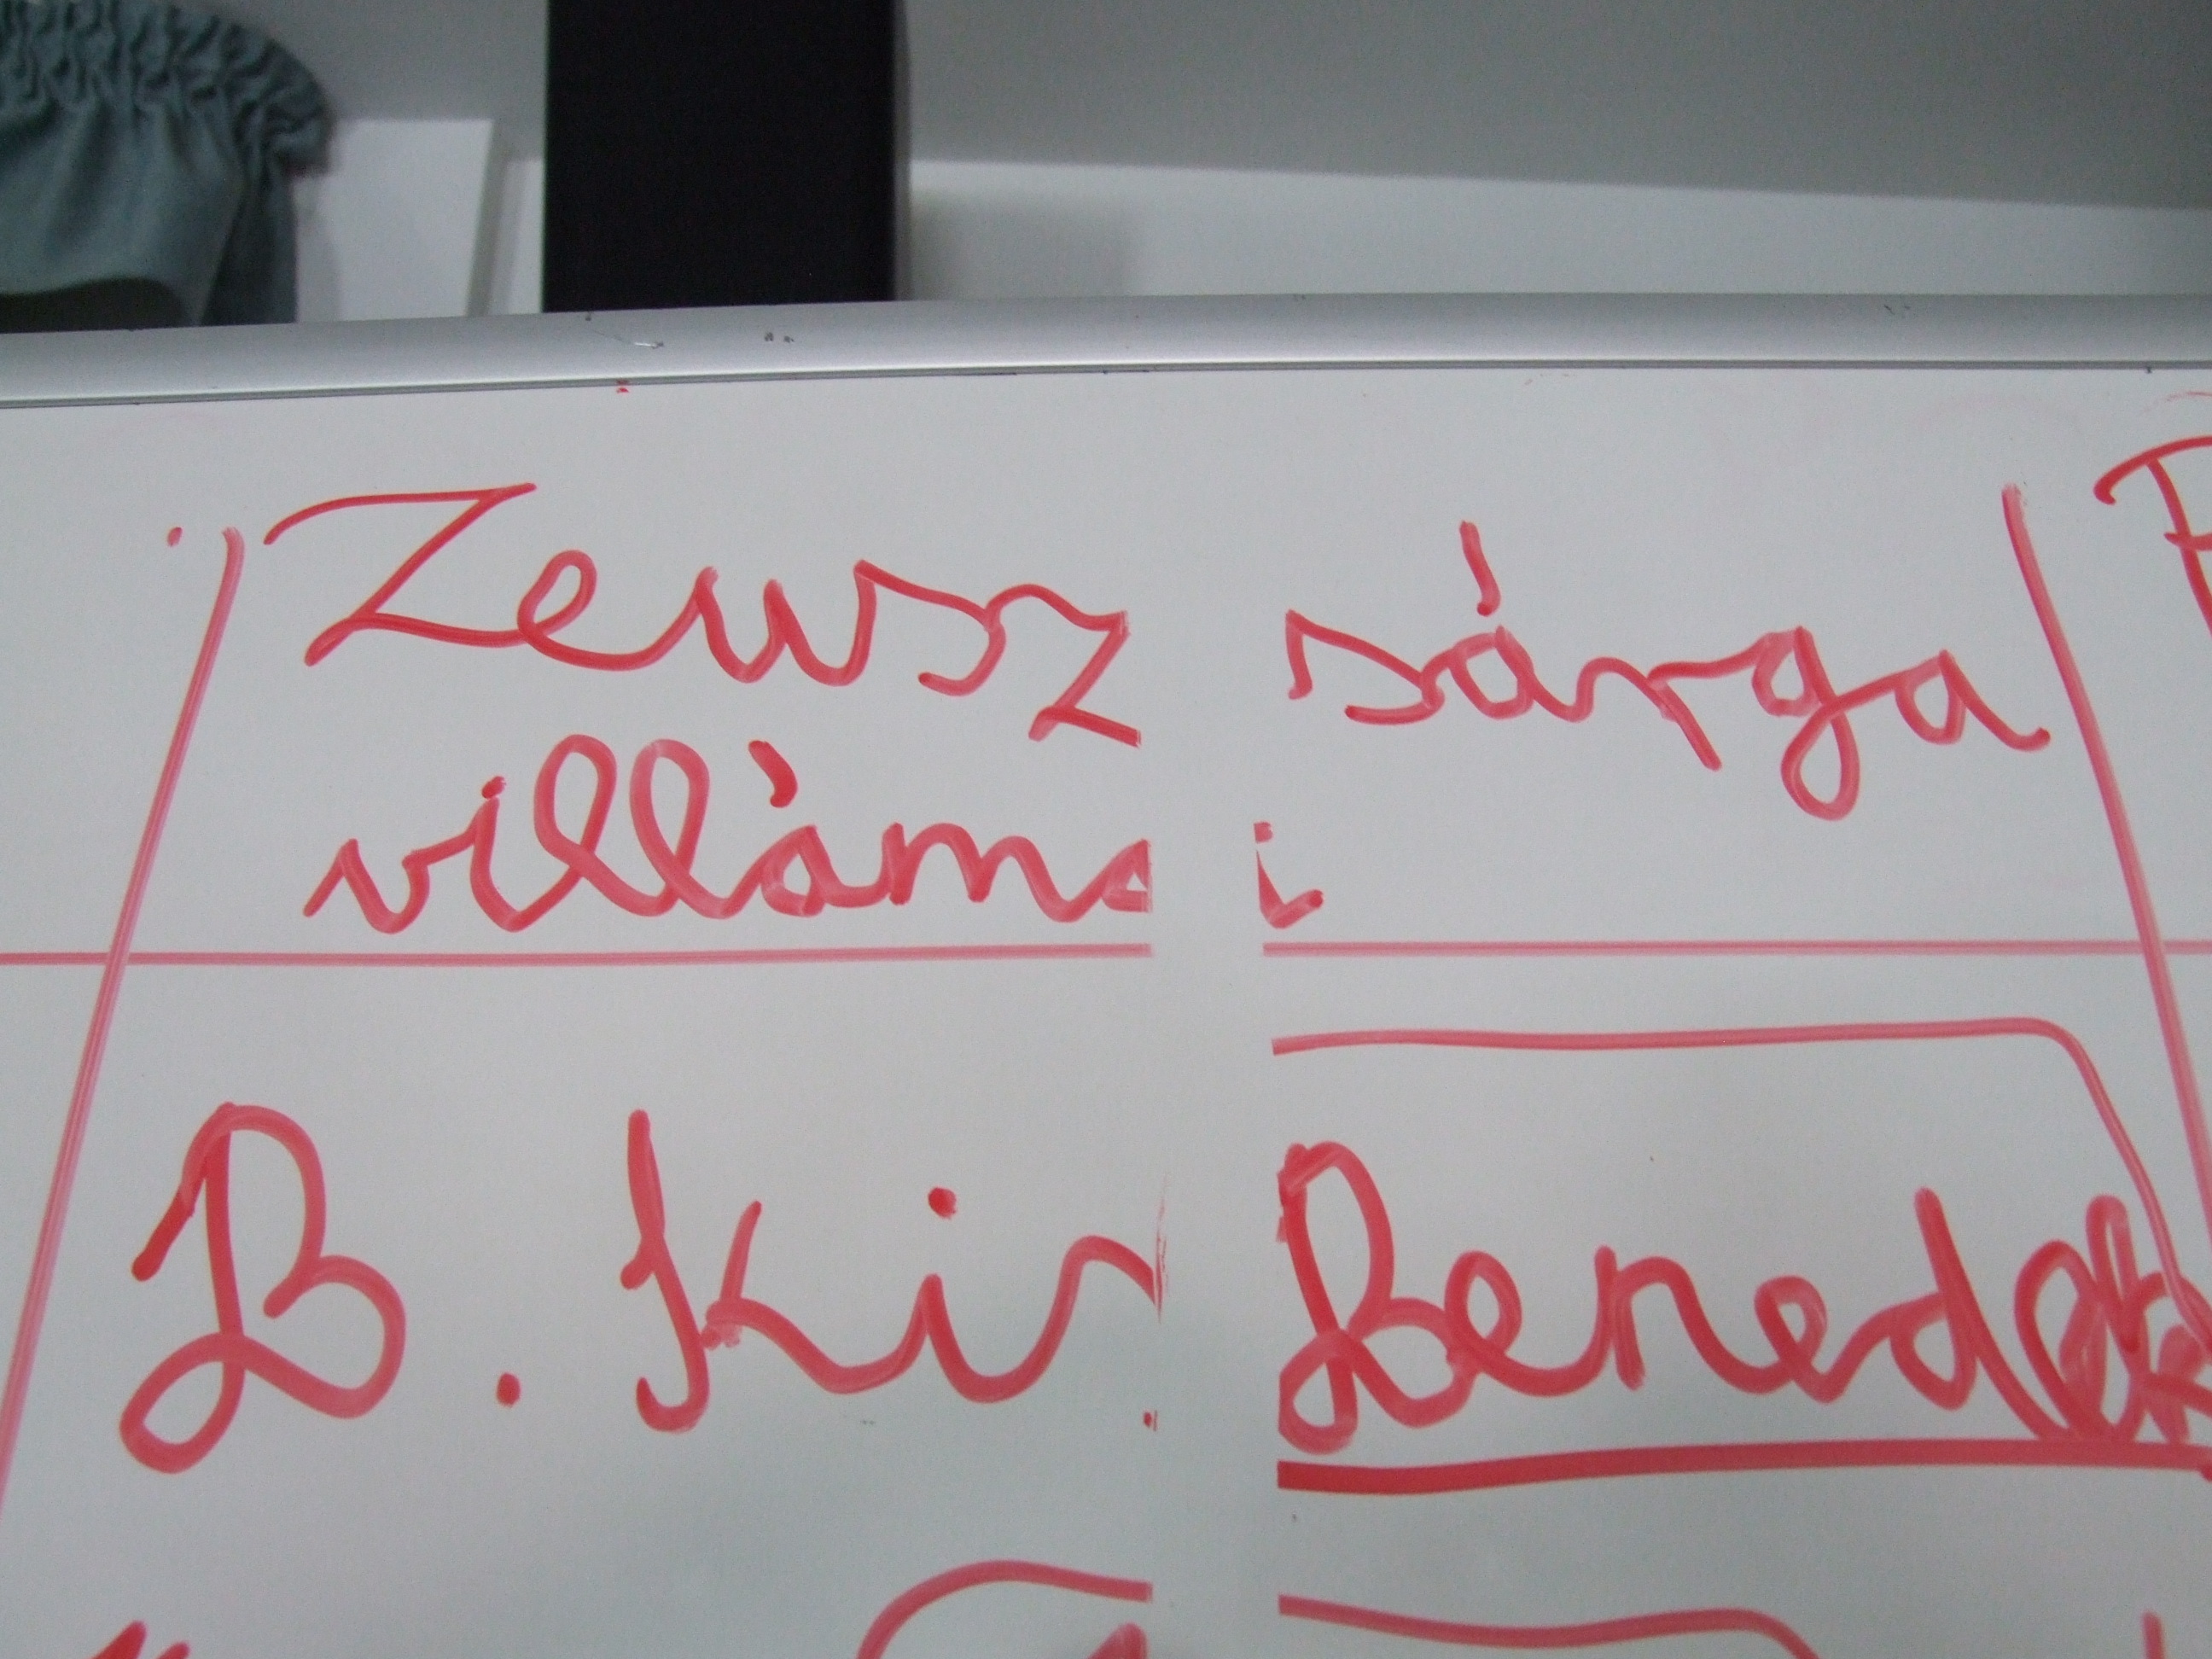 Zeusz sárga
villámai
B. Kir. Benedek